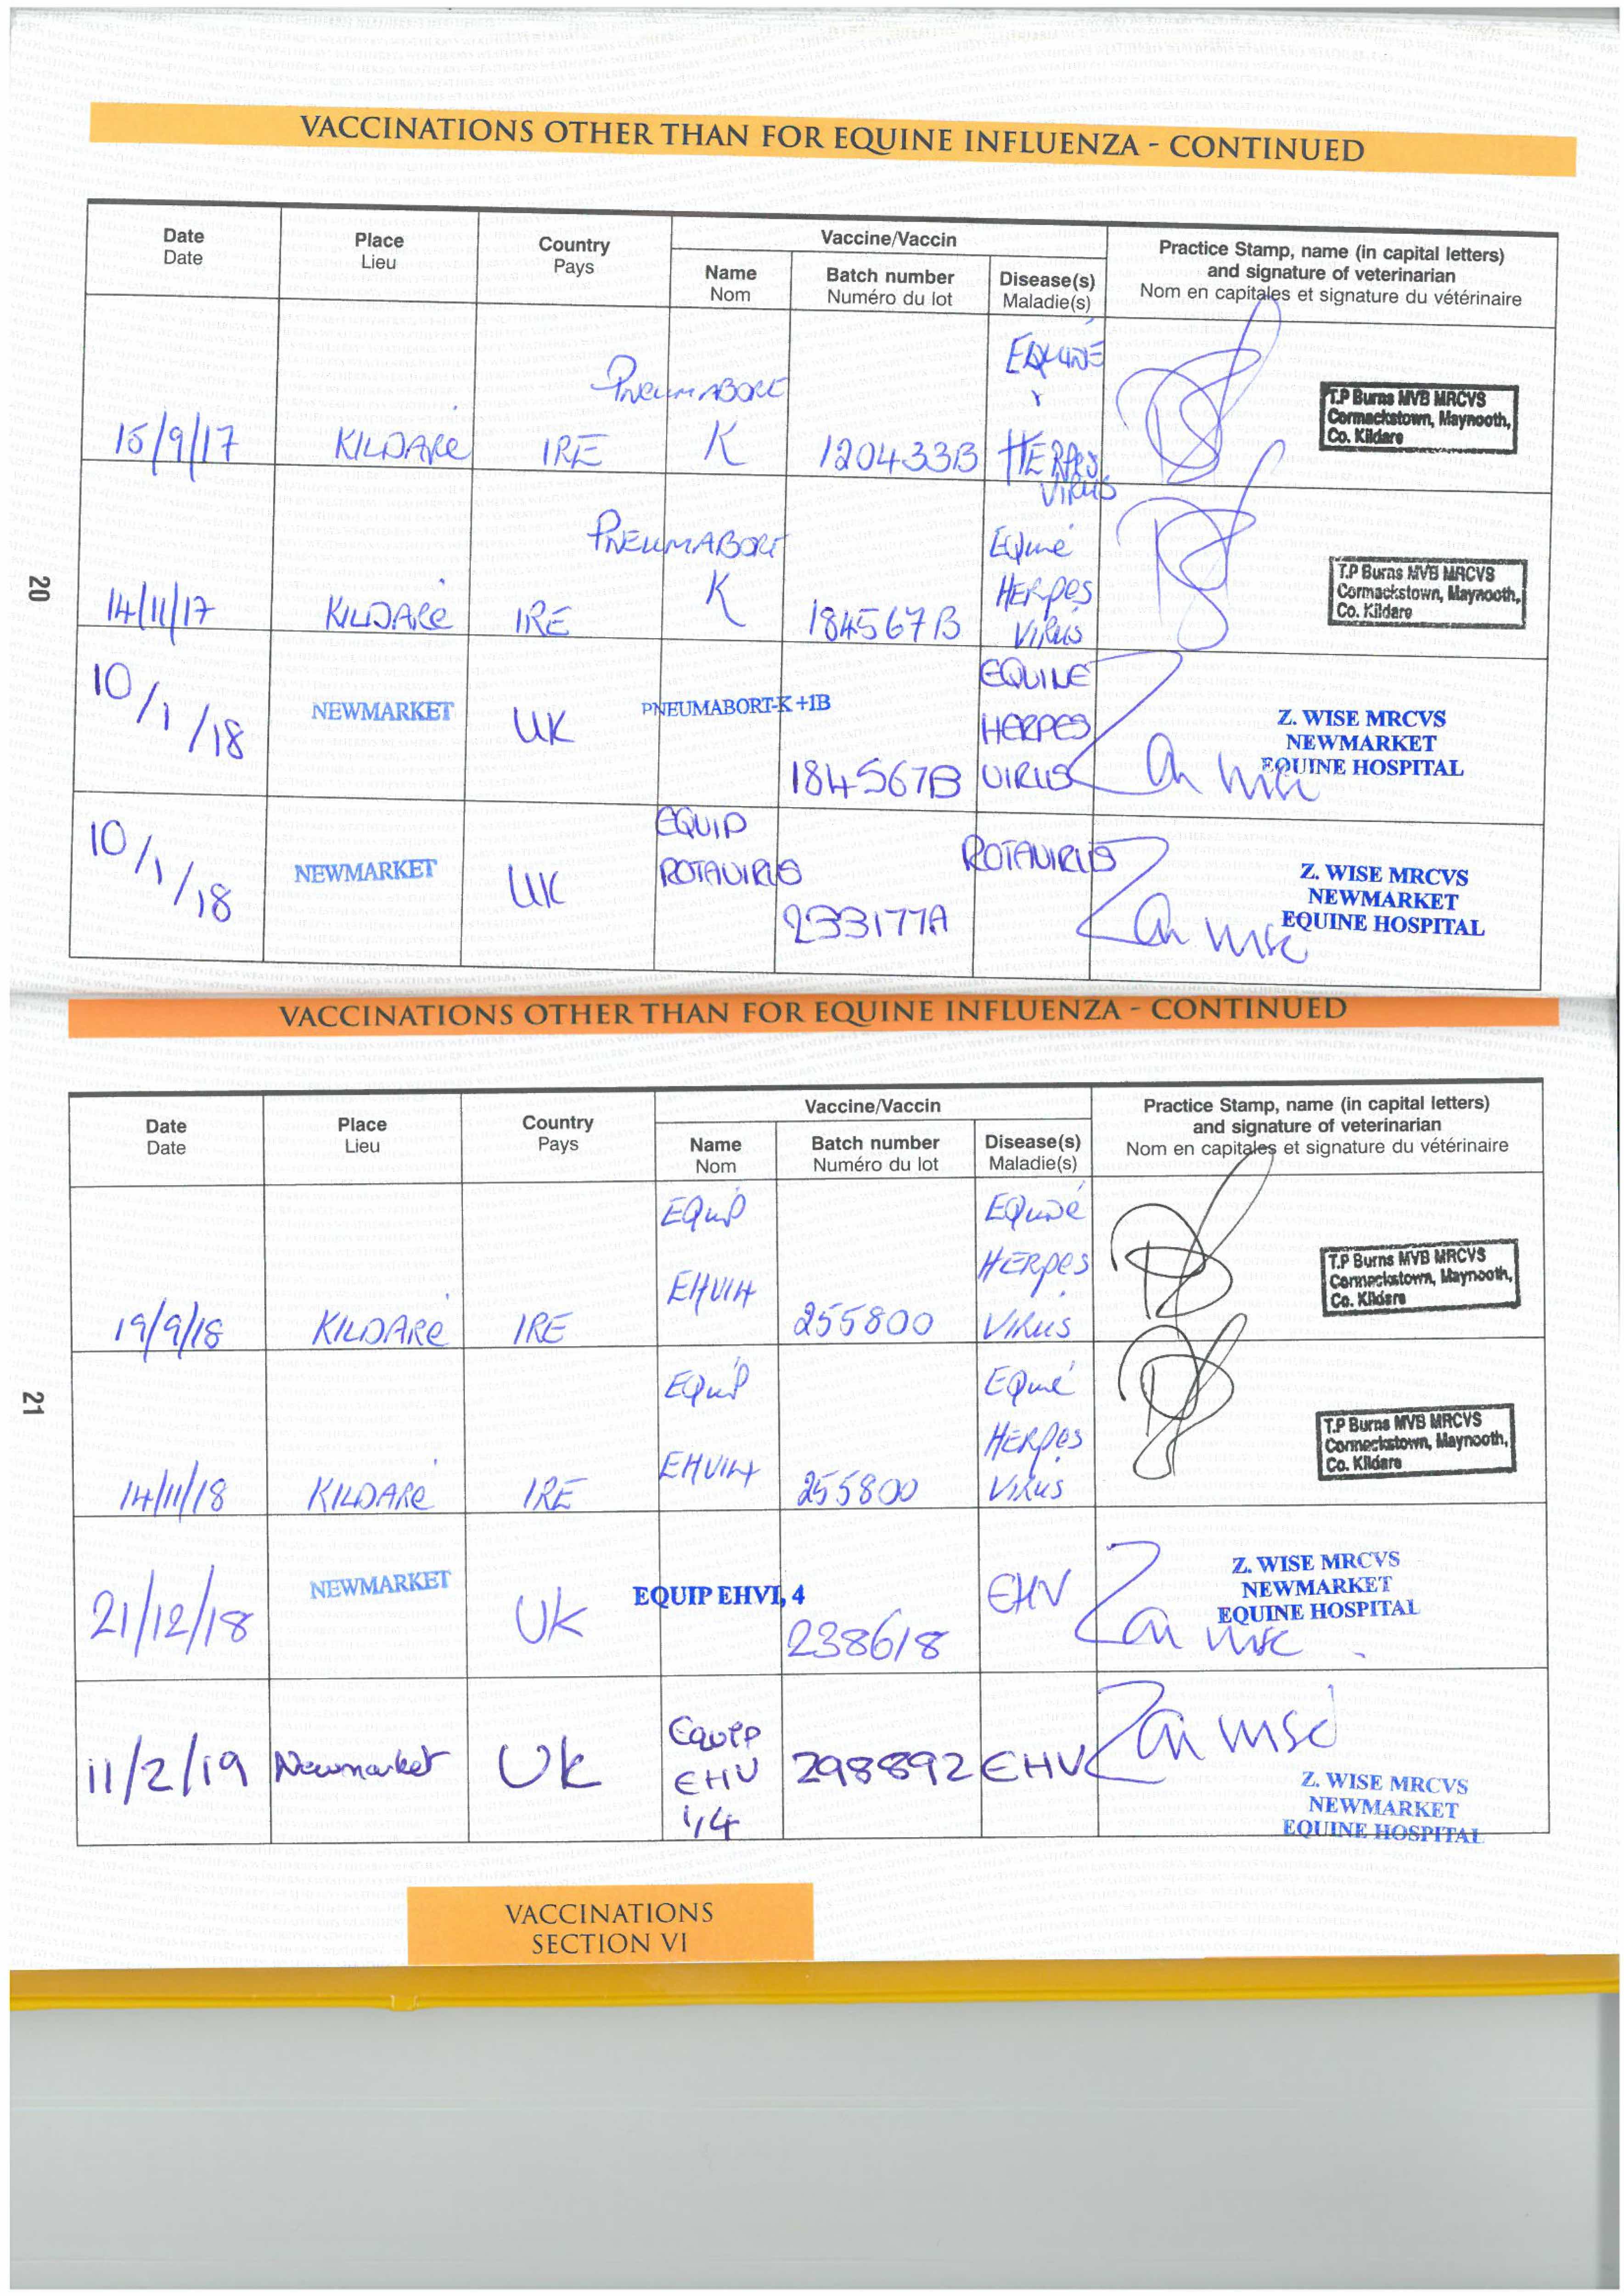 VACCINATIONS OTHER THAN FOR EQUINE INFLUENZA - CONTINUED
Date Place Country Vaccine/Vaccin Practice Stamp, name (in capital letters)
Date Lieu Pays Name Batch number Disease(s) and signature of veterinarian
Nom Numéro du lot Maladie(s) Nom en capitales et signature du vétérinaire
EQUINE
PNEUMABORT
15/9/17 KILDARE IRE K 120433B HERPES
VIRUS
T.P Burns MVB MRCVS
Cormackstown, Maynooth,
Co. Kildare
PNEUMABORT Equine
K HERPES
14/11/17 KILDARE IRE 184567B VIRUS
T.P Burns MVB MRCVS
Cormackstown, Maynooth,
Co. Kildare
20
EQUINE
10/1/18 NEWMARKET UK PNEUMABORT-K+1B HERPES
184567B VIRUS
Z. WISE MRCVS
NEWMARKET
EQUINE HOSPITAL
EQUIP
10/1/18 NEWMARKET UK ROTAVIRUS ROTAVIRUS
233177A
Z. WISE MRCVS
NEWMARKET
EQUINE HOSPITAL
VACCINATIONS OTHER THAN FOR EQUINE INFLUENZA - CONTINUED
Date Place Country Vaccine/Vaccin Practice Stamp, name (in capital letters)
Date Lieu Pays Name Batch number Disease(s) and signature of veterinarian
Nom Numéro du lot Maladie(s) Nom en capitales et signature du vétérinaire
EQuip EQuine
HERpes
EHV14
19/9/18 KILDARE IRE 255800 VIRUS
T.P Burns MVB MRCVS
Cormackstown, Maynooth,
Co. Kildare
EQuip EQuine
HERpes
EHV14
14/11/18 KILDARE IRE 255800 VIRUS
T.P Burns MVB MRCVS
Cormackstown, Maynooth,
Co. Kildare
21
21/12/18 NEWMARKET UK EQUIP EHV1, 4 EHV
238618
Z. WISE MRCVS
NEWMARKET
EQUINE HOSPITAL
Equip
11/2/19 Newmarket UK EHV 298892 EHV
1,4
Z. WISE MRCVS
NEWMARKET
EQUINE HOSPITAL
VACCINATIONS
SECTION VI